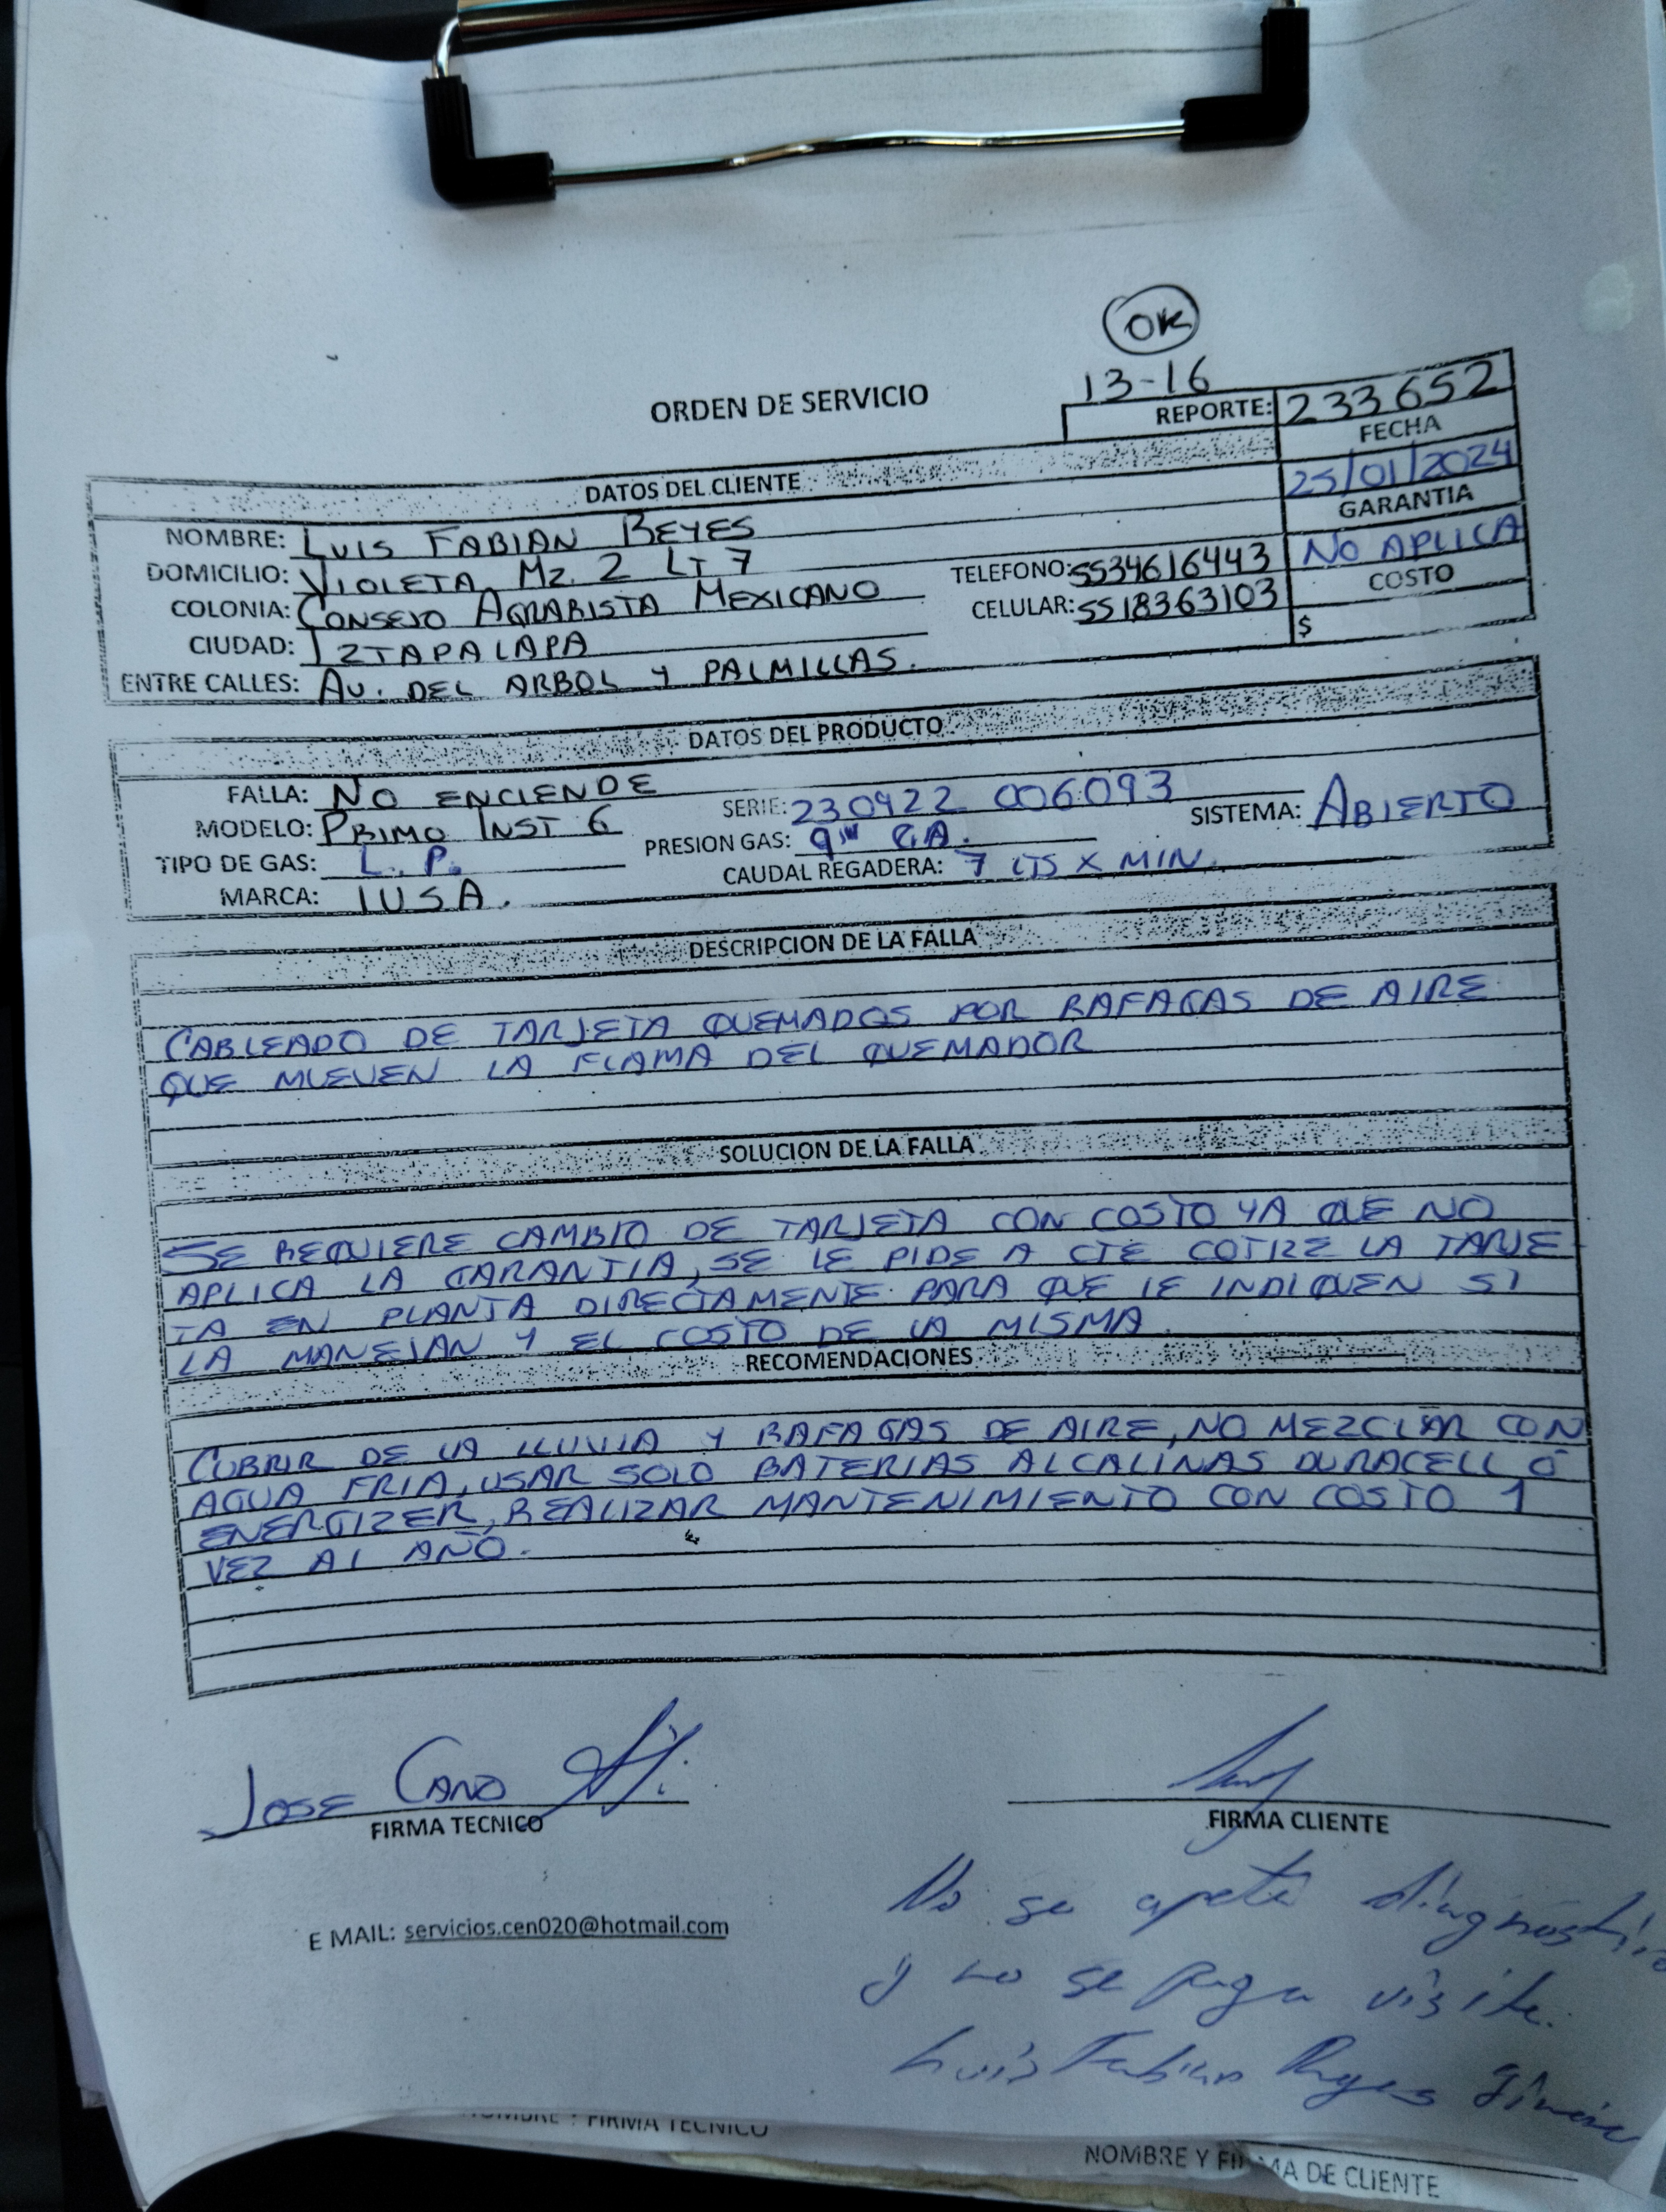 OK
13-16
ORDEN DE SERVICIO
REPORTE: 233652
FECHA
25/01/2024
DATOS DEL CLIENTE
GARANTIA
NOMBRE: LUIS FABIAN REYES
NO APLICA
DOMICILIO: VIOLETA MZ. 2 LT 7
TELEFONO: 5534616443
COSTO
COLONIA: CONSEJO AGRARISTA MEXICANO
CELULAR: 5518363103
CIUDAD: IZTAPALAPA
$
ENTRE CALLES: AV. DEL ARBOL Y PALMILLAS.
DATOS DEL PRODUCTO
FALLA: NO ENCIENDE
SERIE: 230422 006093
SISTEMA: ABIERTO
MODELO: PRIMO INST 6
PRESION GAS: 9" CA.
TIPO DE GAS: L.P.
CAUDAL REGADERA: 7 LTS X MIN.
MARCA: IUSA.
DESCRIPCION DE LA FALLA
CABLEADO DE TARJETA QUEMADOS POR RAFAGAS DE AIRE
QUE MUEVEN LA FLAMA DEL QUEMADOR
SOLUCION DE LA FALLA
SE REQUIERE CAMBIO DE TARJETA CON COSTO YA QUE NO
APLICA LA GARANTIA, SE LE PIDE A CTE COTIZE LA TARJE
TA EN PLANTA DIRECTAMENTE PARA QUE LE INDIQUEN SI
LA MANEJAN Y EL COSTO DE LA MISMA
RECOMENDACIONES
CUBRIR DE LA LLUVIA Y RAFAGAS DE AIRE, NO MEZCLAR CON
AGUA FRIA, USAR SOLO BATERIAS ALCALINAS DURACELL O
ENERGIZER, REALIZAR MANTENIMIENTO CON COSTO 1
VEZ AL AÑO.
JOSE CANO
FIRMA TECNICO
FIRMA CLIENTE
No se apeta diagnostico
E MAIL: servicios.cen020@hotmail.com
y no se paga visita.
Luis Fabian Reyes
NOMBRE Y FIRMA TECNICO
NOMBRE Y FIRMA DE CLIENTE